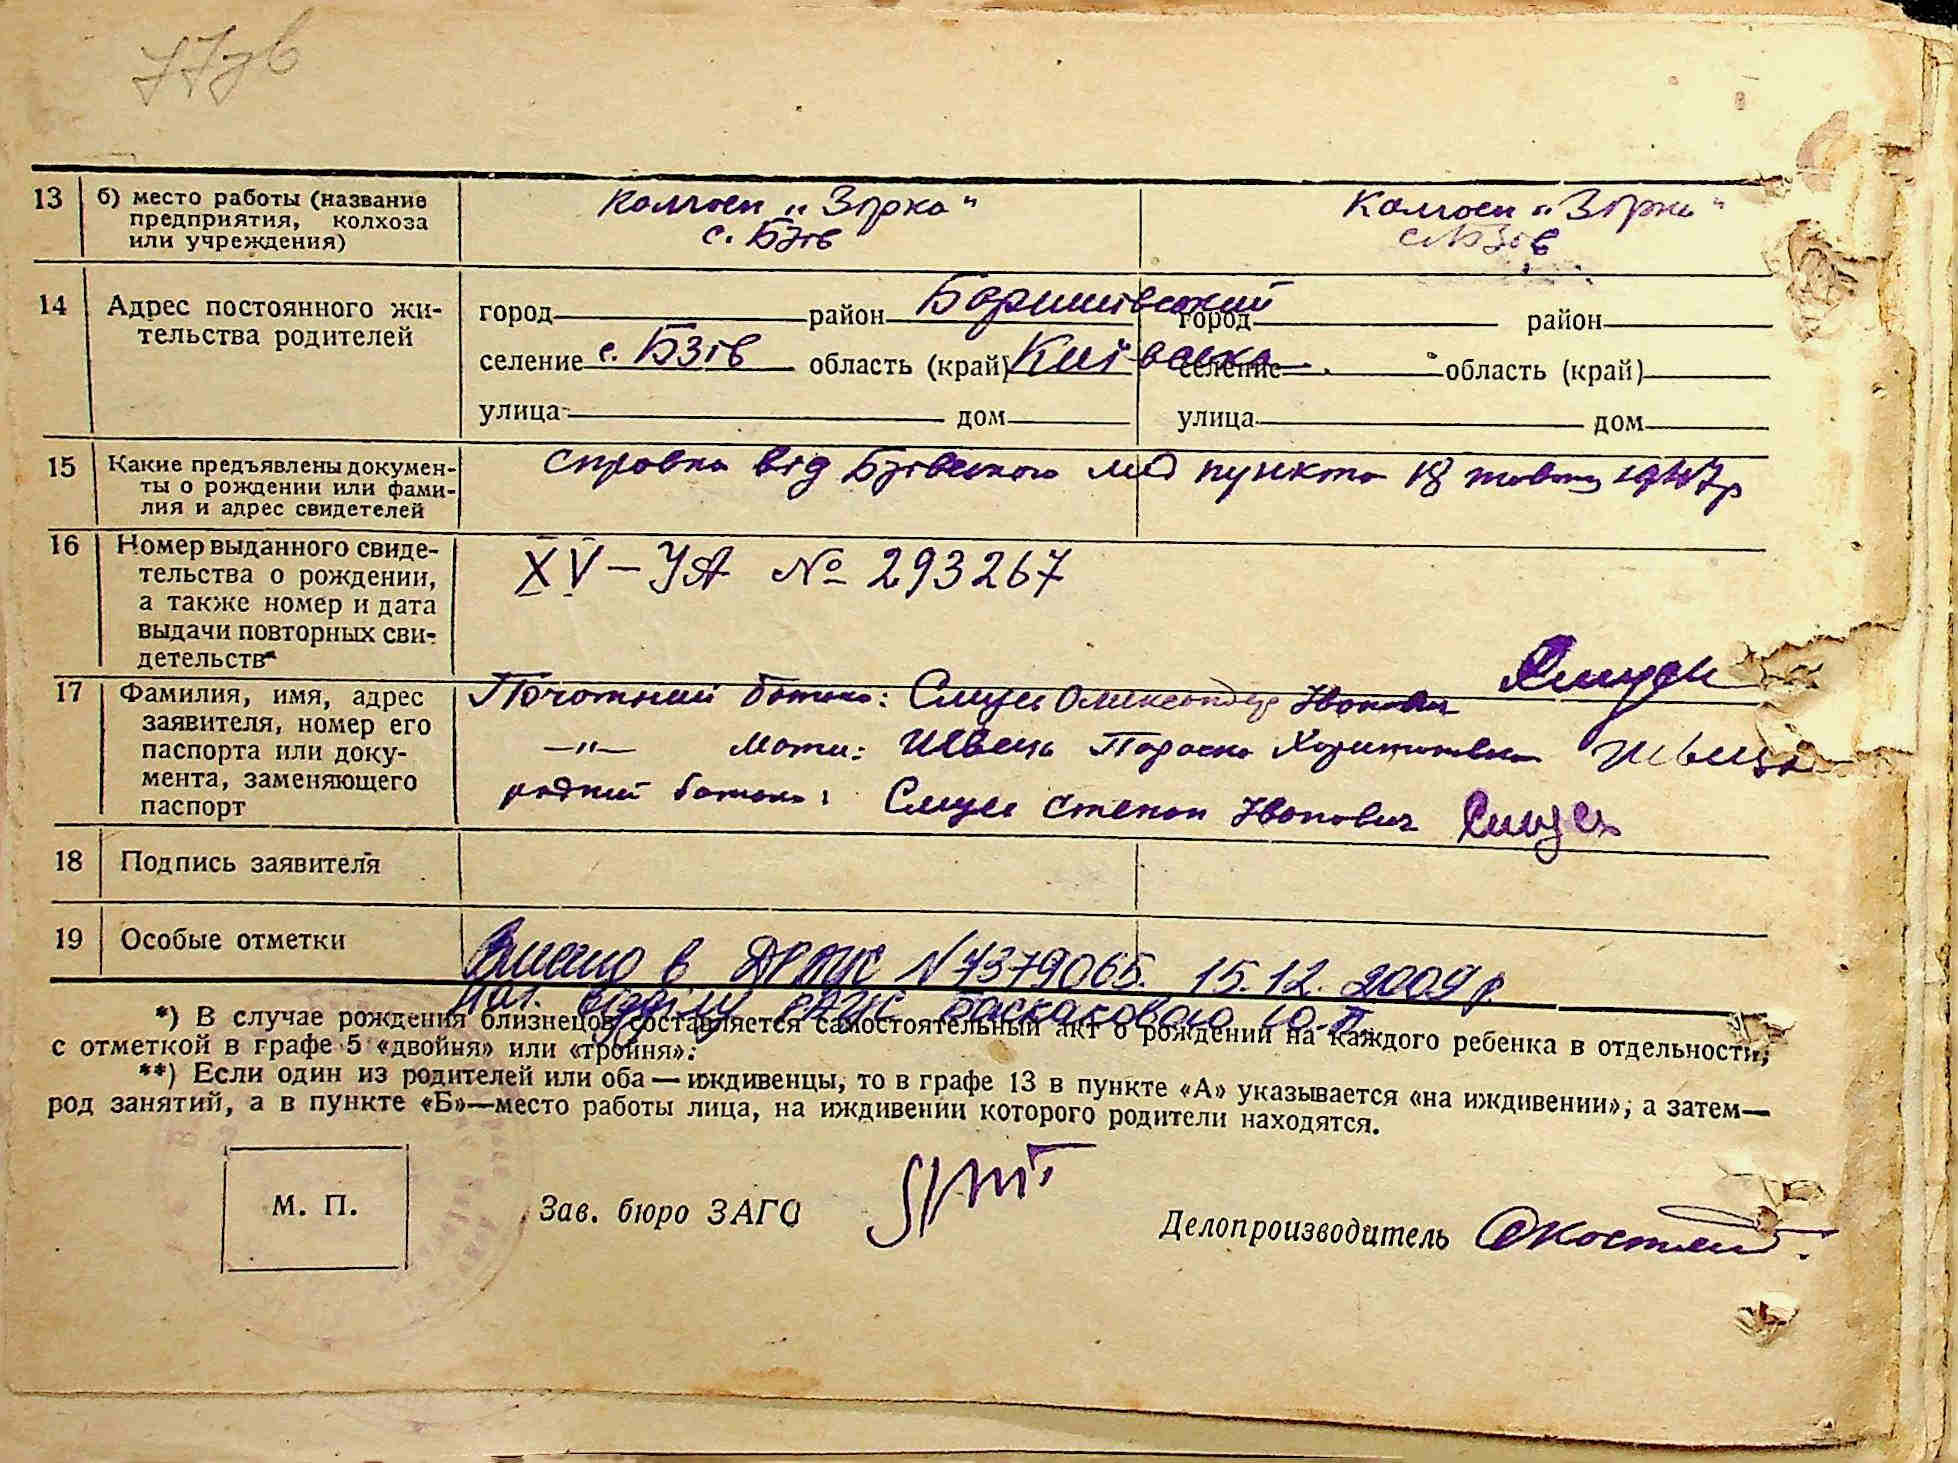 77зв
13 б) место работы (название
предприятия, колхоза
или учреждения)
Колгосп „Зірка"
с. Бзів
Колгосп „Зірка"
с. Бзів
14 Адрес постоянного жи-
тельства родителей
город район Баришівський
селение с. Бзів область (край) Київська.
улица дом
город район
селение область (край)
улица дом
15 Какие предъявлены докумен-
ты о рождении или фами-
лия и адрес свидетелей
справка від Бзівського мед пункта 18 1947р
16 Номер выданного свиде-
тельства о рождении,
а также номер и дата
выдачи повторных сви-
детельств
XV-УА № 293267
17 Фамилия, имя, адрес
заявителя, номер его
паспорта или доку-
мента, заменяющего
паспорт
батько: Слиусь Олександр Іванович
–"– Мати: Швець Параска Харитоновна Швець
рідний батько: Слиусь Степан Іванович
18 Подпись заявителя
19 Особые отметки
Внесено в ДРАЦС N7379065. 15.12.2009р.
Нач. відділу РАЦС Баскакового Ю.П.
*) В случае рождения близнецов составляется самостоятельный акт о рождении на каждого ребенка в отдельности,
с отметкой в графе 5 «двойня» или «тройня».
**) Если один из родителей или оба — иждивенцы, то в графе 13 в пункте «А» указывается «на иждивении», а затем—
род занятий, а в пункте «Б»—место работы лица, на иждивении которого родители находятся.
М. П.
Зав. бюро ЗАГС
Делопроизводитель